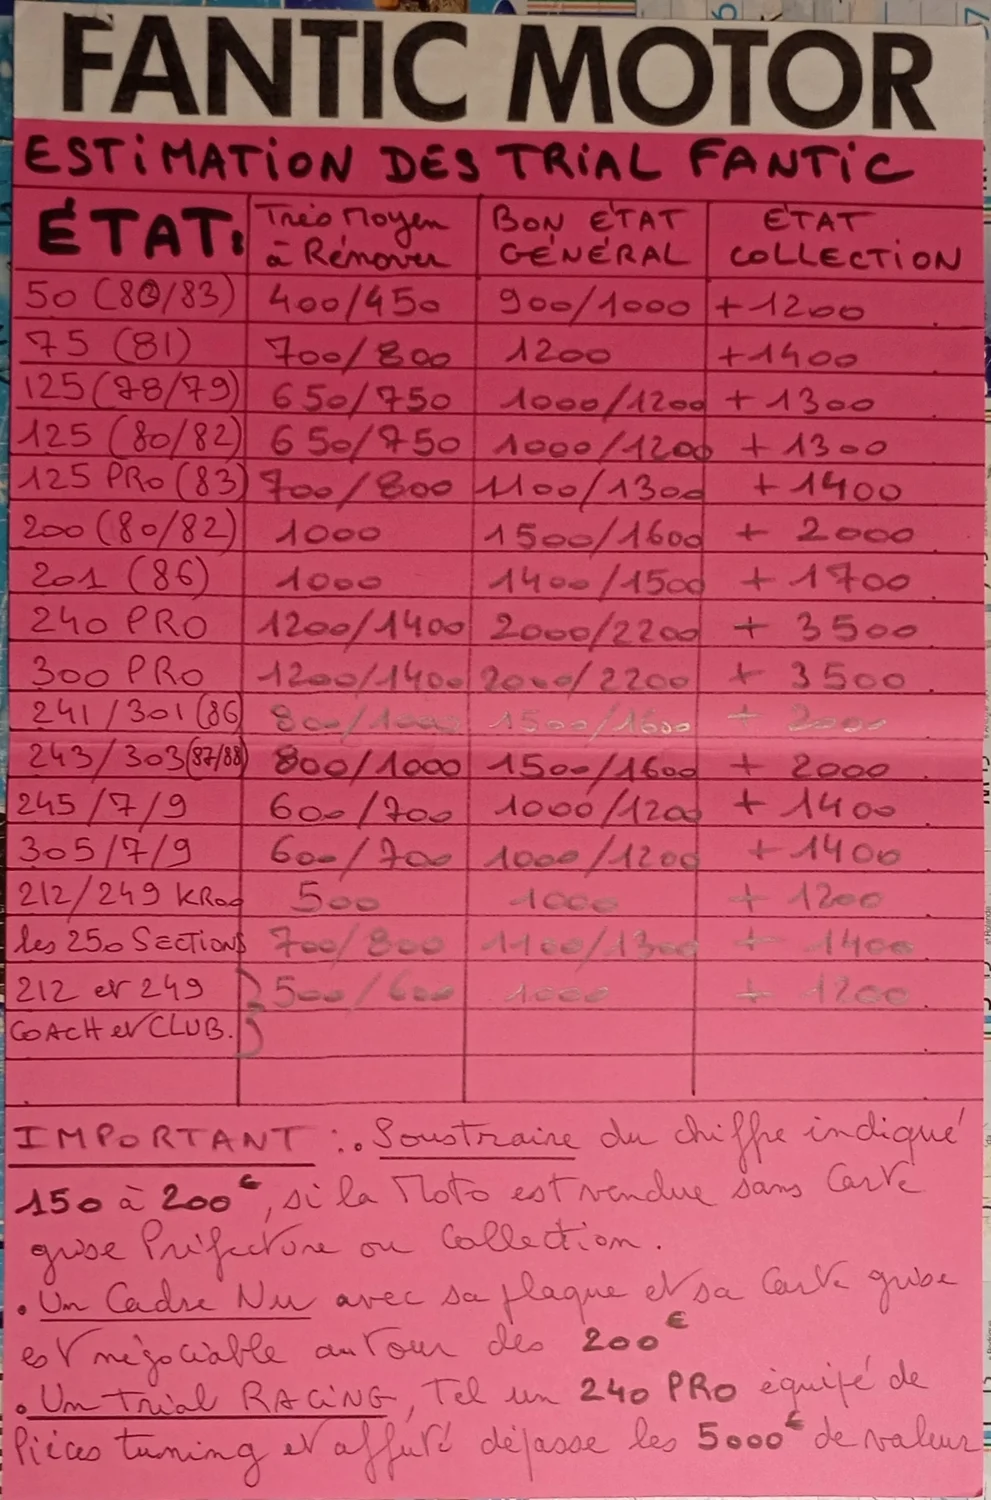 FANTIC MOTOR
ESTIMATION DES TRIAL FANTIC
ÉTAT: Très Moyen à Rénover BON ÉTAT GÉNÉRAL ÉTAT COLLECTION
50 (80/83) 400/450 900/1000 +1200
75 (81) 700/800 1200 +1400
125 (78/79) 650/750 1000/1200 +1300
125 (80/82) 650/750 1000/1200 + 1300
125 PRO (83) 700/800 1100/1300 + 1400
200 (80/82) 1000 1500/1600 + 2000
201 (86) 1000 1400/1500 + 1700
240 PRO 1200/1400 2000/2200 + 3500
300 PRO 1200/1400 2000/2200 + 3500
241/301 (86 800/1000 1500/1600 + 2000
243/303 (87/88) 800/1000 1500/1600 + 2000
245/7/9 600/700 1000/1200 + 1400
305/7/9 600/700 1000/1200 + 1400
212/249 KRoo 500 1000 + 1200
les 250 SECTIONS 700/800 1100/1300 + 1400
212 et 249 500/600 1000 + 1200
COACH et CLUB.
IMPORTANT :. Soustraire du chiffre indiqué
150 à 200€, si la Moto est vendue sans Carte
grise Préfecture ou Collection.
• Un Cadre Nu avec sa plaque et sa Carte grise
est négociable autour des 200€
• Un Trial RACING, Tel un 240 PRO équipé de
Pièces tuning et affuté dépasse les 5000€ de valeur